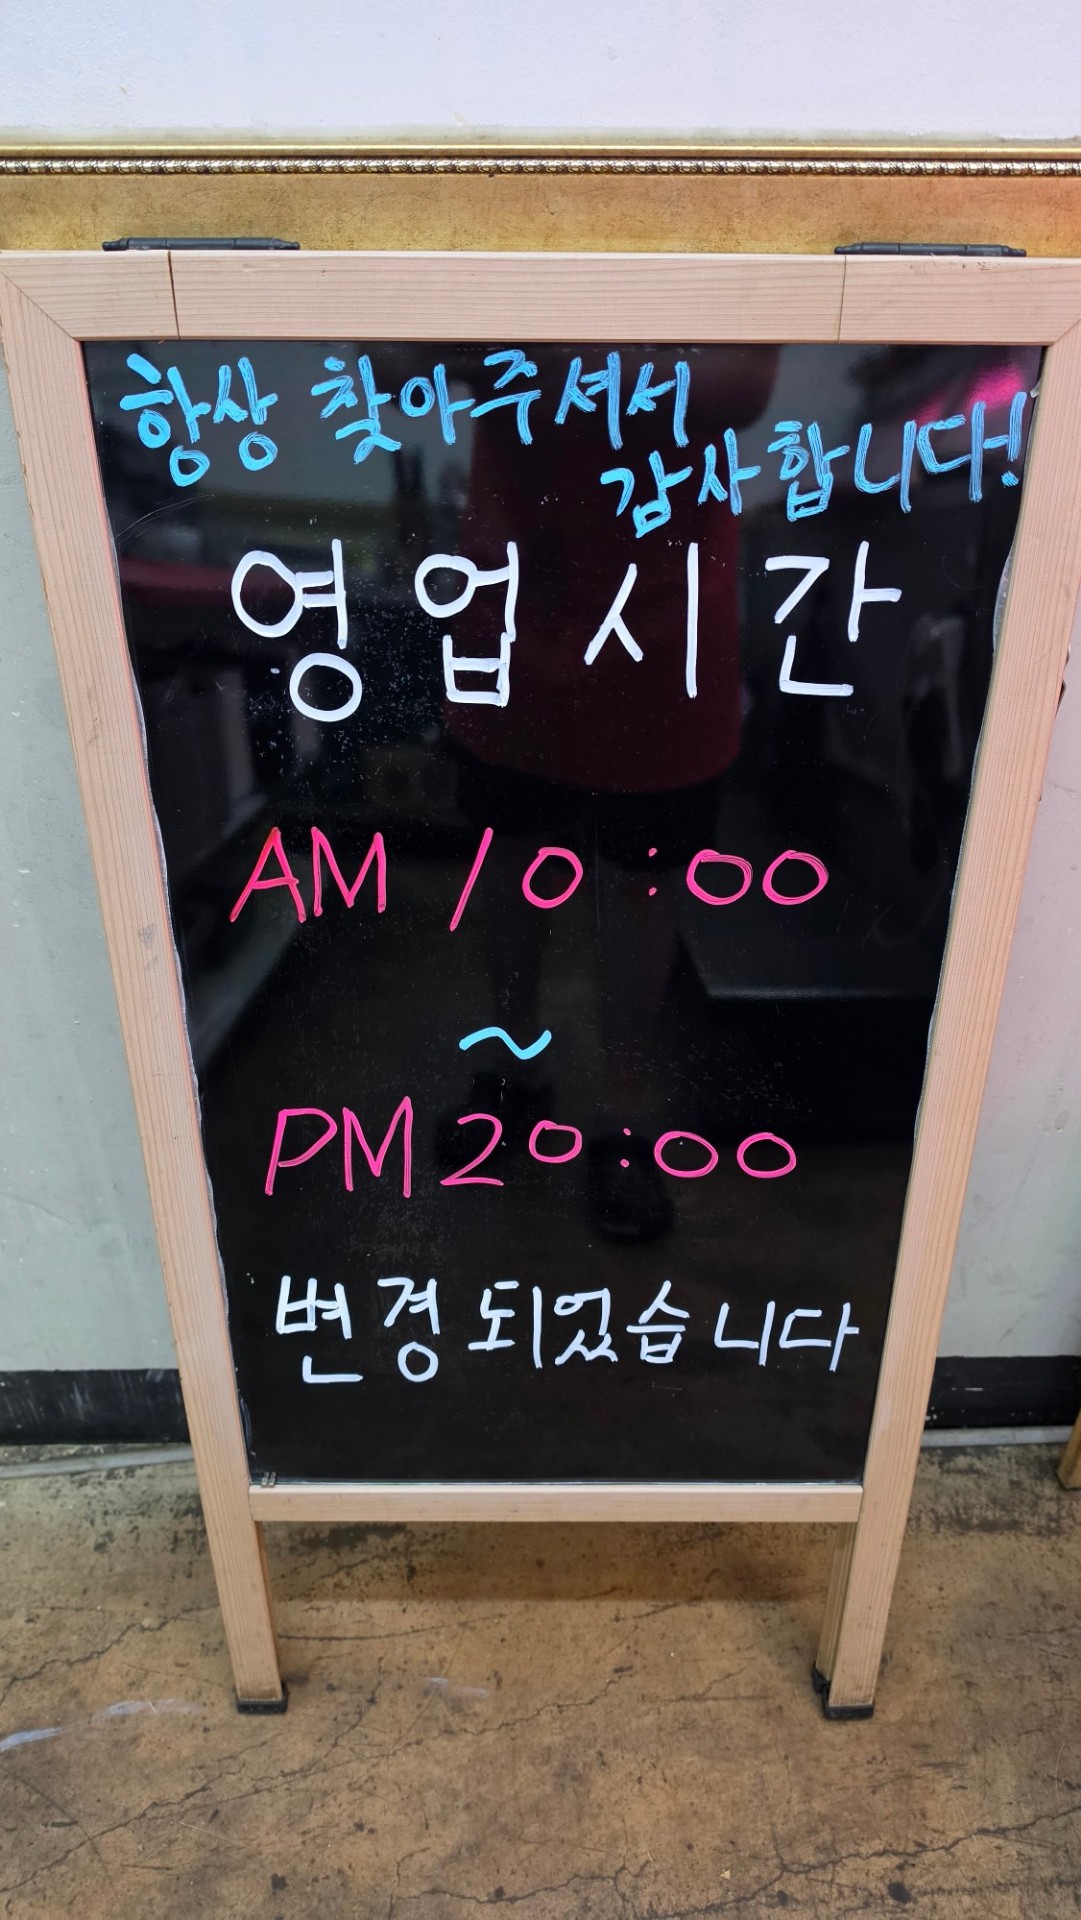 항상 찾아주셔서
감사합니다!
영업시간
AM 10:00
~
PM 20:00
변경되었습니다